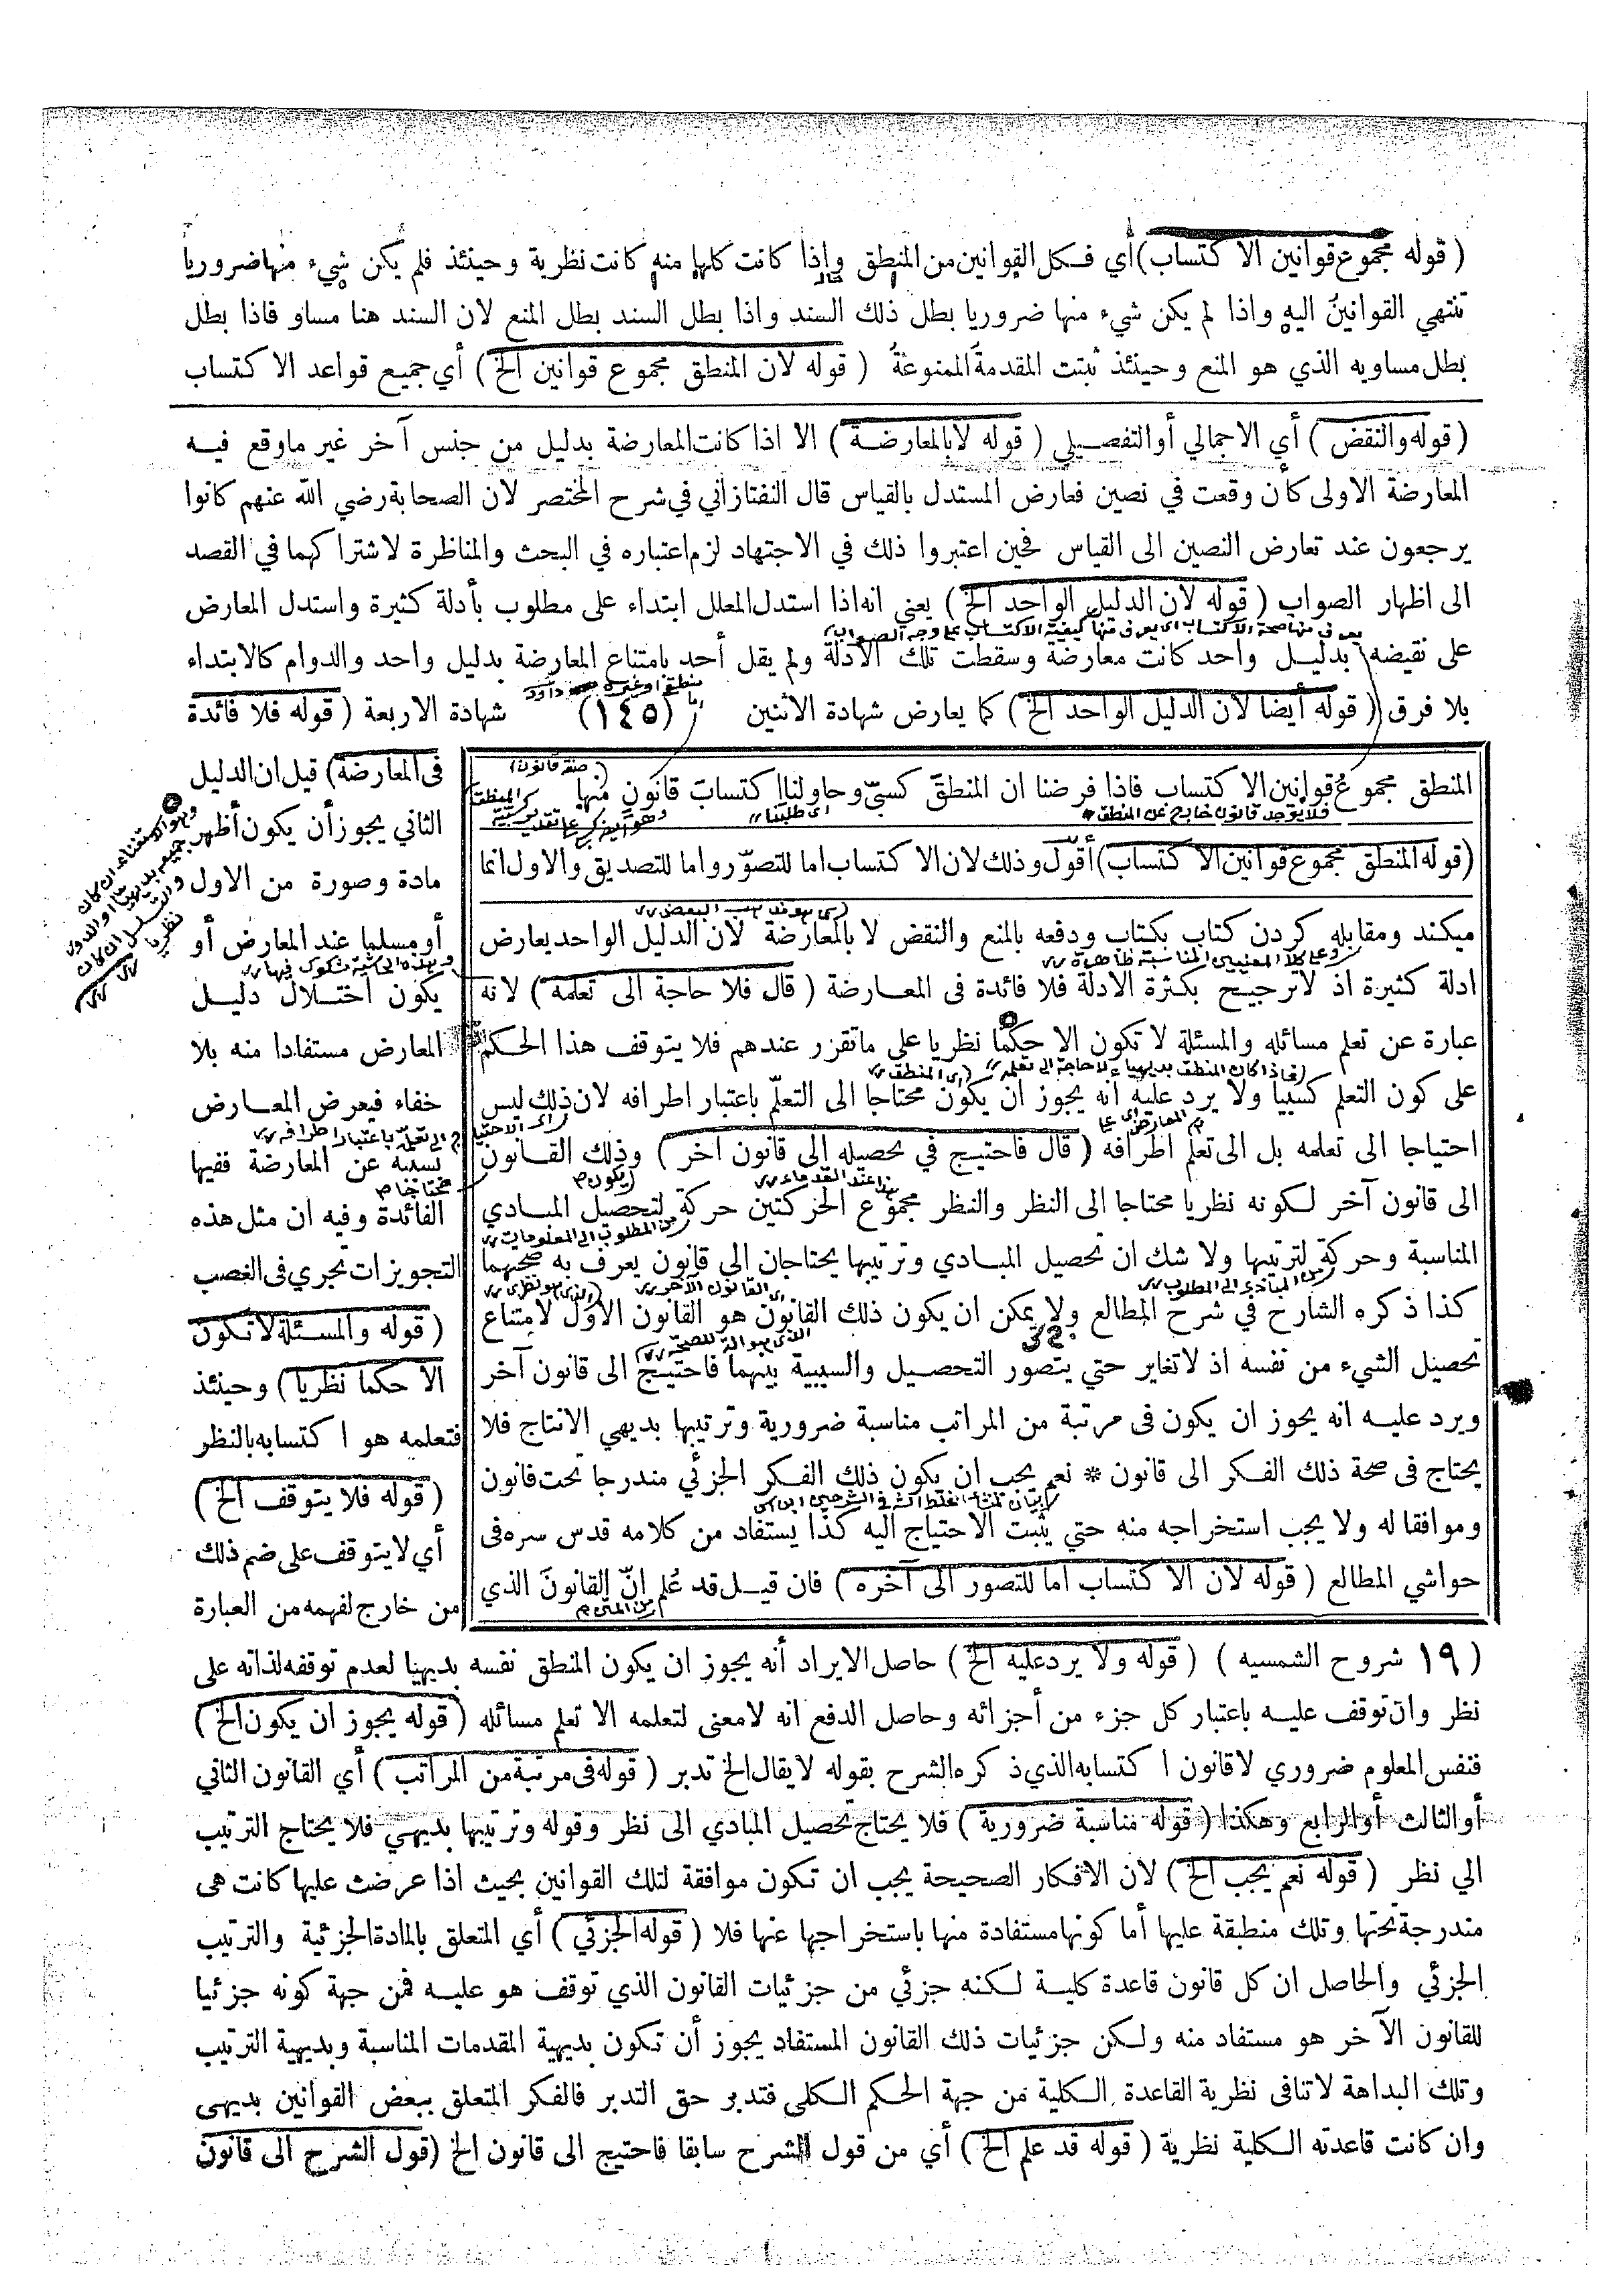 ( قوله مجموع قوانين الاكتساب ) أي فكل القوانين من المنطق واذا كانت كلها منه كانت نظرية وحينئذ فلم يكن شيء منها ضروريا
تنتهي القوانين اليه واذا لم يكن شيء منها ضروريا بطل ذلك السند واذا بطل السند بطل المنع لان السند هنا مساو فاذا بطل
بطل مساويه الذي هو المنع وحينئذ ثبتت المقدمة الممنوعة ( قوله لان المنطق مجموع قوانين الخ ) أي جميع قواعد الاكتساب
( قوله والنقض ) أي الاجمالي أو التفصيلي ( قوله لا بالمعارضة ) الا اذا كانت المعارضة بدليل من جنس آخر غير ما وقع فيه
المعارضة الاولى كأن وقعت في نصين فعارض المستدل بالقياس قال التفتازاني في شرح المختصر لان الصحابة رضي الله عنهم كانوا
يرجعون عند تعارض النصين الى القياس فحين اعتبروا ذلك في الاجتهاد لزم اعتباره في البحث والمناظرة لاشتراكهما في القصد
الى اظهار الصواب ( قوله لان الدليل الواحد الخ ) يعني انه اذا استدل المعلل ابتداء على مطلوب بأدلة كثيرة واستدل المعارض
على نقيضه بدليل واحد كانت معارضة وسقطت تلك الادلة ولم يقل أحد بامتناع المعارضة بدليل واحد والدوام كالابتداء
بلا فرق ( قوله أيضا لان الدليل الواحد الخ ) كما يعارض شهادة الاثنين (١٤٥) شهادة الاربعة ( قوله فلا فائدة
فى المعارضة ) قيل ان الدليل
الثاني يجوز أن يكون أظهر
مادة وصورة من الاول
أو مسلما عند المعارض أو
يكون اختلال دليل
المعارض مستفادا منه بلا
خفاء فيعرض المعارض
بسببه عن المعارضة ففيها
الفائدة وفيه ان مثل هذه
التجويزات تجري فى الغصب
( قوله والمسئلة لا تكون
الا حكما نظريا ) وحينئذ
فتعلمه هو اكتسابه بالنظر
( قوله فلا يتوقف الخ )
أي لا يتوقف على ضم ذلك
من خارج لفهمه من العبارة
المنطق مجموع قوانين الاكتساب فاذا فرضنا ان المنطق كسبيّ وحاولنا اكتساب قانون منها
فلا يوجد قانون خارج عن المنطق
اى طلبنا
( قوله المنطق مجموع قوانين الاكتساب ) أقول وذلك لان الاكتساب اما للتصوّر واما للتصديق والاول انما
ميكند ومقابله كردن كتاب بكتاب ودفعه بالمنع والنقض لا بالمعارضة لان الدليل الواحد يعارض
ادلة كثيرة اذ لا ترجيح بكثرة الادلة فلا فائدة فى المعارضة ( قال فلا حاجة الى تعلمه ) لانه
عبارة عن تعلم مسائله والمسئلة لا تكون الا حكما نظريا على ما تقرر عندهم فلا يتوقف هذا الحكم
على كون التعلم كسبيا ولا يرد عليه انه يجوز ان يكون محتاجا الى التعلّم باعتبار اطرافه لان ذلك ليس
احتياجا الى تعلمه بل الى تعلم اطرافه ( قال فاحتيج في تحصيله الى قانون اخر ) وذلك القانون
الى قانون آخر لكونه نظريا محتاجا الى النظر والنظر مجموع الحركتين حركة لتحصيل المبادي
من المطلوب الى المعلومات
المناسبة وحركة لترتيبها ولا شك ان تحصيل المبادي وترتيبها يحتاجان الى قانون يعرف به صحتهما
من المبادى الى المطلوب
كذا ذكره الشارح في شرح المطالع ولا يمكن ان يكون ذلك القانون هو القانون الاول لامتناع
تحصيل الشيء من نفسه اذ لا تغاير حتي يتصور التحصيل والسببية بينهما فاحتيج الى قانون آخر
ويرد عليه انه يجوز ان يكون فى مرتبة من المراتب مناسبة ضرورية وترتيبها بديهي الانتاج فلا
يحتاج فى صحة ذلك الفكر الى قانون * نعم يجب ان يكون ذلك الفكر الجزئي مندرجا تحت قانون
وموافقا له ولا يجب استخراجه منه حتي يثبت الاحتياج اليه كذا يستفاد من كلامه قدس سره فى
حواشي المطالع ( قوله لان الاكتساب اما للتصور الى آخره ) فان قيل قد عُلم انّ القانونَ الذي
( ١٩ شروح الشمسيه ) ( قوله ولا يرد عليه الخ ) حاصل الايراد أنه يجوز ان يكون المنطق نفسه بديهيا لعدم توقفه لذاته على
نظر وان توقف عليه باعتبار كل جزء من أجزائه وحاصل الدفع انه لا معنى لتعلمه الا تعلم مسائله ( قوله يجوز ان يكون الخ )
فنفس المعلوم ضروري لا قانون اكتسابه الذي ذكره الشرح بقوله لا يقال الخ تدبر ( قوله فى مرتبة من المراتب ) أي القانون الثاني
أو الثالث أو الرابع وهكذا ( قوله مناسبة ضرورية ) فلا يحتاج تحصيل المبادي الى نظر وقوله وترتيبها بديهي فلا يحتاج الترتيب
الي نظر ( قوله نعم يجب الخ ) لان الافكار الصحيحة يجب ان تكون موافقة لتلك القوانين بحيث اذا عرضت عليها كانت هى
مندرجة تحتها وتلك منطبقة عليها أما كونها مستفادة منها باستخراجها عنها فلا ( قوله الجزئي ) أي المتعلق بالمادة الجزئية والترتيب
الجزئي والحاصل ان كل قانون قاعدة كلية لكنه جزئي من جزئيات القانون الذي توقف هو عليه فمن جهة كونه جزئيا
للقانون الآخر هو مستفاد منه ولكن جزئيات ذلك القانون المستفاد يجوز أن تكون بديهية المقدمات المناسبة وبديهية الترتيب
وتلك البداهة لا تنافى نظرية القاعدة الكلية من جهة الحكم الكلى فتدبر حق التدبر فالفكر المتعلق ببعض القوانين بديهى
وان كانت قاعدته الكلية نظرية ( قوله قد علم الخ ) أي من قول الشرح سابقا فاحتيج الى قانون الخ ( قول الشرح الى قانون